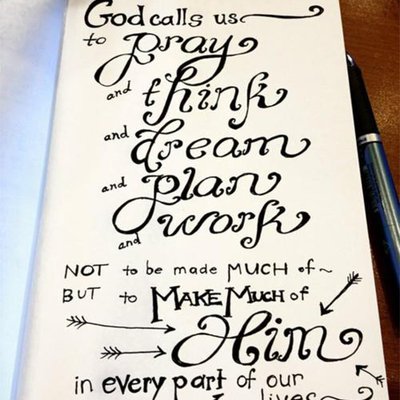 God calls us
to pray
and think
and dream
and plan
and work
NOT to be made MUCH of~
BUT to MAKE MUCH of
Him
in every part of our
lives